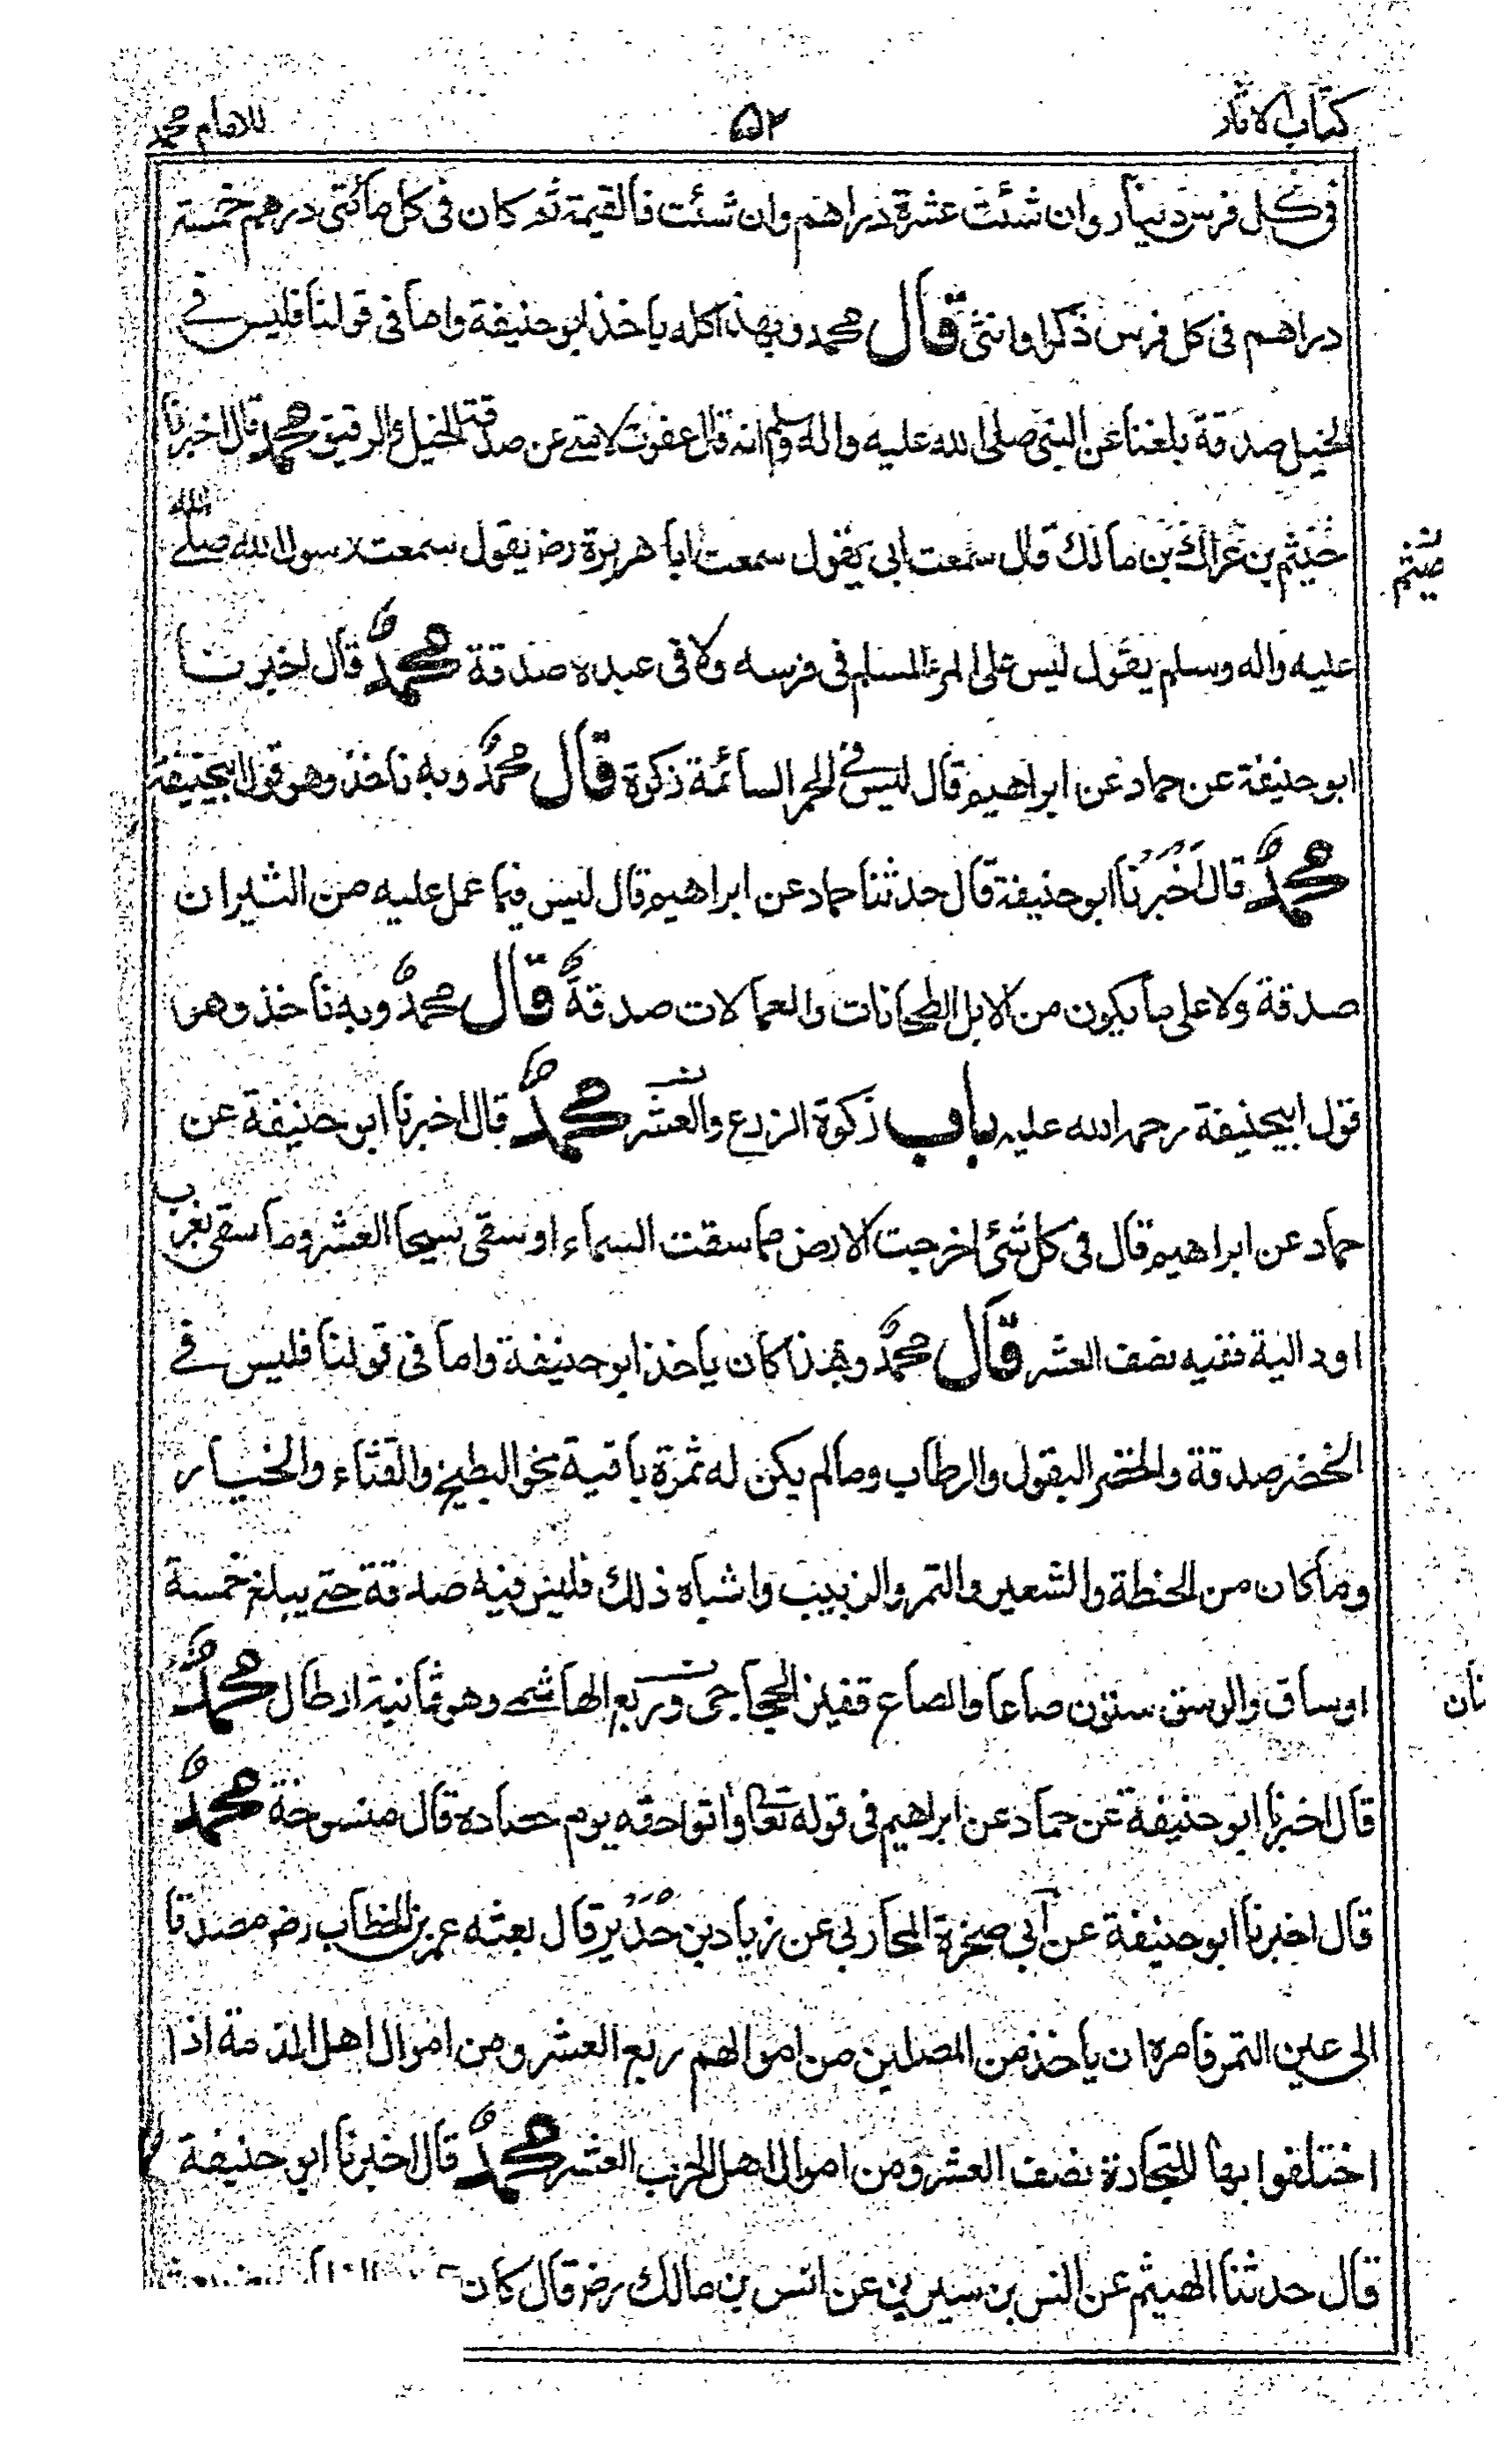 كتاب الاثار
٥٢
للامام محمد
في كل فرس دينار وان شئت عشرة دراهم وان شئت فالقيمة ثم كان في كل مائتي درهم خمسة
دراهم في كل فرس ذكرا وانثى قال محمد وبهذا كله ياخذ ابو حنيفة واما في قولنا فليس في
الخيل صدقة بلغنا عن النبي صلى الله عليه واله وسلم انه قال عفوت لامتي عن صدقة الخيل والرقيق محمد قال اخبرنا
خيثم بن عراك بن مالك قال سمعت ابي يقول سمعت ابا هريرة رض يقول سمعت رسول الله صلى الله
خيثم
عليه واله وسلم يقول ليس على المرء المسلم في فرسه ولا في عبده صدقة محمد قال اخبرنا
ابو حنيفة عن حماد عن ابراهيم قال ليس في الحمر السائمة زكوة قال محمد وبه ناخذ وهو قول ابيحنيفة
محمد قال اخبرنا ابو حنيفة قال حدثنا حماد عن ابراهيم قال ليس فيما عمل عليه من الثيران
صدقة ولا على ما يكون من الابل الطحانات والعمالات صدقة قال محمد وبه ناخذ وهو
قول ابيحنيفة رحمه الله عليه باب زكوة الزرع والعشر محمد قال اخبرنا ابو حنيفة عن
حماد عن ابراهيم قال في كل شئ اخرجت الارض مما سقت السماء او سقى سيحا العشر وما سقى بغرب
او دالية ففيه نصف العشر قال محمد وبهذا كان ياخذ ابو حنيفة واما في قولنا فليس في
الخضر صدقة والخضر البقول والرطاب وما لم يكن له ثمرة باقية نحو البطيخ والقثاء والخيار
وما كان من الحنطة والشعير والتمر والزبيب واشباه ذلك فليس فيه صدقة حتى يبلغ خمسة
اوساق والوسق ستون صاعا والصاع قفيز الحجاجي وربع الهاشمي وهو ثمانية ارطال محمد
قال اخبرنا ابو حنيفة عن حماد عن ابراهيم في قوله تعالى واتوا حقه يوم حصاده قال منسوخة محمد
قال اخبرنا ابو حنيفة عن ابي صخرة المحاربي عن زياد بن حدير قال بعثه عمر بن الخطاب رض مصدقا
الى عين التمر فامره ان ياخذ من المصلين من اموالهم ربع العشر ومن اموال اهل الذمة اذا
اختلفوا بها للتجارة نصف العشر ومن اموال اهل الحرب العشر محمد قال اخبرنا ابو حنيفة
قال حدثنا الهيثم عن انس بن سيرين عن انس بن مالك رض قال كان